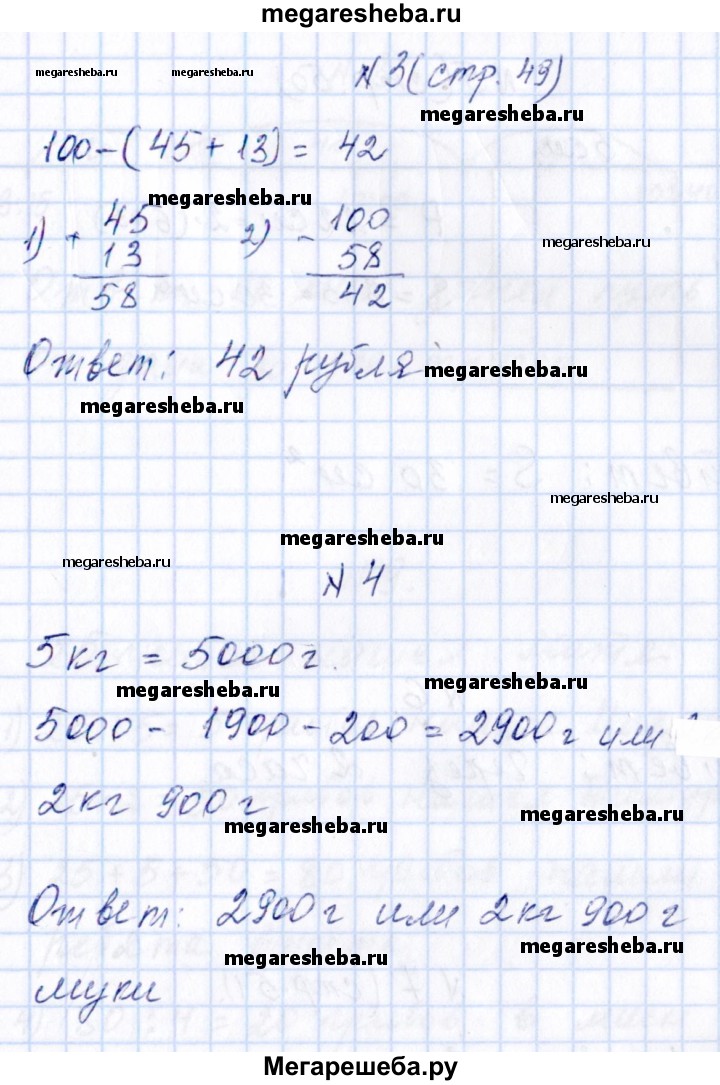 megaresheba.ru
megaresheba.ru megaresheba.ru N 3 (стр. 49)
megaresheba.ru
100-(45+13)= 42
megaresheba.ru
1) + 45 2) - 100
13 58 megaresheba.ru
58 42
Ответ: 42 рубля megaresheba.ru
megaresheba.ru
megaresheba.ru
megaresheba.ru
megaresheba.ru
N 4
5кг = 5000г.
megaresheba.ru megaresheba.ru
5000 - 1900 - 200 = 2900г или
2кг 900г
megaresheba.ru megaresheba.ru
Ответ: 2900г или 2кг 900г
megaresheba.ru megaresheba.ru
муки
Мегарешеба.ру